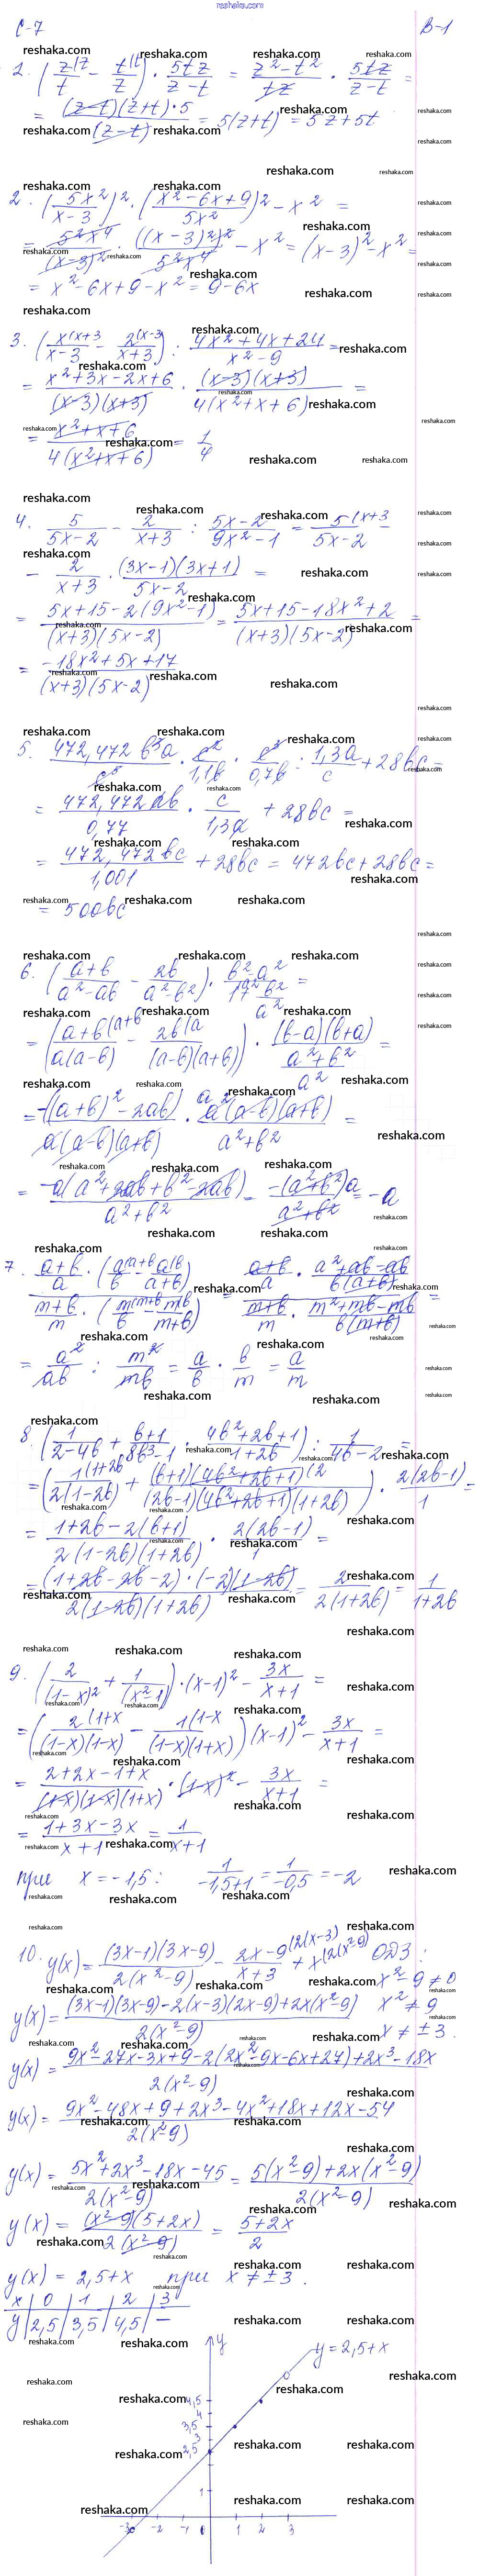 reshaka.com
С-7 В-1
1. (z(z/t - t(t/z) · 5tz/z-t = z²-t²/tz · 5tz/z-t =
= (z-t)(z+t)·5/(z-t) = 5(z+t) = 5z+5t
2. (5x²/x-3)² · (x²-6x+9/5x²)² - x² =
= 5²x⁴/(x-3)² · ((x-3)²)²/5²x⁴ - x² = (x-3)² - x² =
= x²-6x+9-x² = 9-6x
3. (x(x+3/x-3 - 2(x-3/x+3) : 4x²+4x+24/x²-9 =
= x²+3x-2x+6/(x-3)(x+3) · (x-3)(x+3)/4(x²+x+6) =
= x²+x+6/4(x²+x+6) = 1/4
4. 5/5x-2 - 2/x+3 : 5x-2/9x²-1 = 5(x+3/5x-2 -
- 2/x+3 · (3x-1)(3x+1)/5x-2 =
= 5x+15-2(9x²-1)/(x+3)(5x-2) = 5x+15-18x²+2/(x+3)(5x-2) =
= -18x²+5x+17/(x+3)(5x-2)
5. 472,472 b³a/c⁵ · c²/1,1b · c³/0,7b : 1,3a/c + 28bc =
= 472,472ab/0,77 · c/1,3a + 28bc =
= 472,472bc/1,001 + 28bc = 472bc+28bc =
= 500bc
6. (a+b/a²-ab - 2b/a²-b²) · b²-a²/1+b²/a² =
= (a+b(a+b/a(a-b) - 2b(a/(a-b)(a+b)) · (b-a)(b+a)/a²+b²/a² =
= -((a+b)²-2ab)/a(a-b)(a+b) · a²(a-b)(a+b)/a²+b² =
= -a(a²+2ab+b²-2ab)/a²+b² = -(a²+b²)a/a²+b² = -a
7. a+b/a · (a(a+b/b - a(b/a+b)/m+b/m · (m(m+b/b - m(b/m+b) = a+b/a · a²+ab-ab/b(a+b)/m+b/m · m²+mb-mb/b(m+b) =
= a²/ab : m²/mb = a/b · b/m = a/m
8. (1/2-4b + b+1/8b³-1 · 4b²+2b+1/1+2b) : 1/4b-2 =
= (1(1+2b/2(1-2b) + (b+1)(4b²+2b+1)(2/(2b-1)(4b²+2b+1)(1+2b)) · 2(2b-1)/1 =
= 1+2b-2(b+1)/2(1-2b)(1+2b) · 2(2b-1)/1 =
= (1+2b-2b-2)·(-2)(1-2b)/2(1-2b)(1+2b) = 2/2(1+2b) = 1/1+2b
9. (2/(1-x)² + 1/(x²-1)) · (x-1)² - 3x/x+1 =
= (2(1+x/(1-x)(1-x) - 1(1-x/(1-x)(1+x)) (x-1)² - 3x/x+1 =
= 2+2x-1+x/(1-x)(1-x)(1+x) · (1-x)² - 3x/x+1 =
= 1+3x-3x/x+1 = 1/x+1
при x = -1,5: 1/-1,5+1 = 1/-0,5 = -2
10. y(x) = (3x-1)(3x-9)/2(x²-9) - 2x-9(2(x-3)/x+3 + x(2(x²-9) ОДЗ:
x²-9≠0
y(x) = (3x-1)(3x-9)-2(x-3)(2x-9)+2x(x²-9)/2(x²-9) x²≠9
x≠±3.
y(x) = 9x²-27x-3x+9-2(2x²-9x-6x+27)+2x³-18x/2(x²-9)
y(x) = 9x²-48x+9+2x³-4x²+18x+12x-54/2(x²-9)
y(x) = 5x²+2x³-18x-45/2(x²-9) = 5(x²-9)+2x(x²-9)/2(x²-9)
y(x) = (x²-9)(5+2x)/2(x²-9) = 5+2x/2
y(x) = 2,5+x при x≠±3.
x | 0 | 1 | 2 | 3
y | 2,5 | 3,5 | 4,5 | —
y
y=2,5+x
4,5
4
3,5
3
2,5
1
-3 -2 -1 0 1 2 3